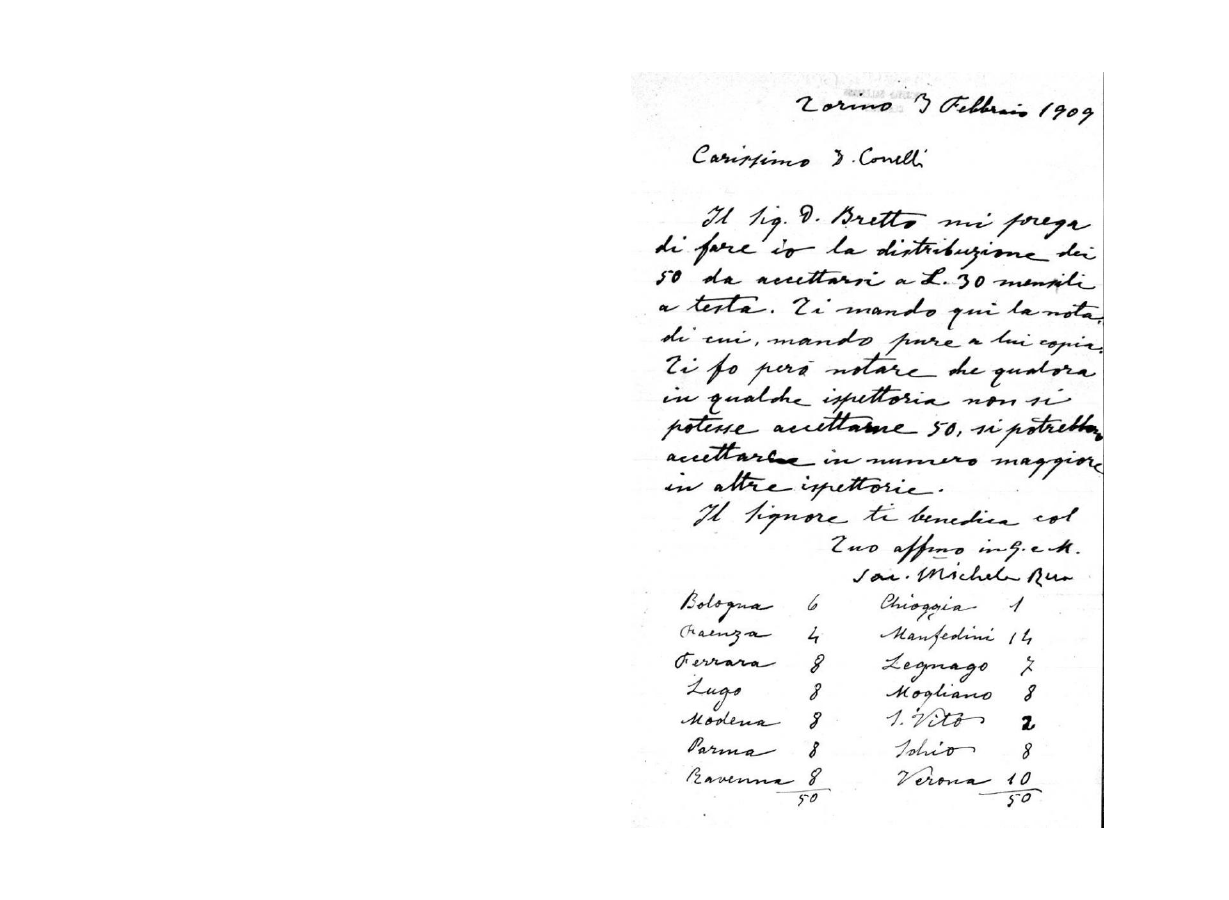 Torino 3 Febbraio 1909
Carissimo D. Conelli
Il Sig. D. Bretto mi prega
di fare io la distribuzione dei
50 da accettarsi a L. 30 mensili
a testa. Ti mando qui la nota,
di cui, mando pure a lui copia.
Ti fo però notare che qualora
in qualche ispettoria non si
potesse accettarne 50, si potrebbero
accettare in numero maggiore
in altre ispettorie.
Il Signore ti benedica col
Tuo affmo in G. e M.
Sac. Michele Rua
Bologna 6 Chioggia 1
Faenza 4 Manfredini 14
Ferrara 8 Legnago 7
Lugo 8 Mogliano 8
Modena 8 S. Vito 2
Parma 8 Schio 8
Ravenna 8 Verona 10
50 50